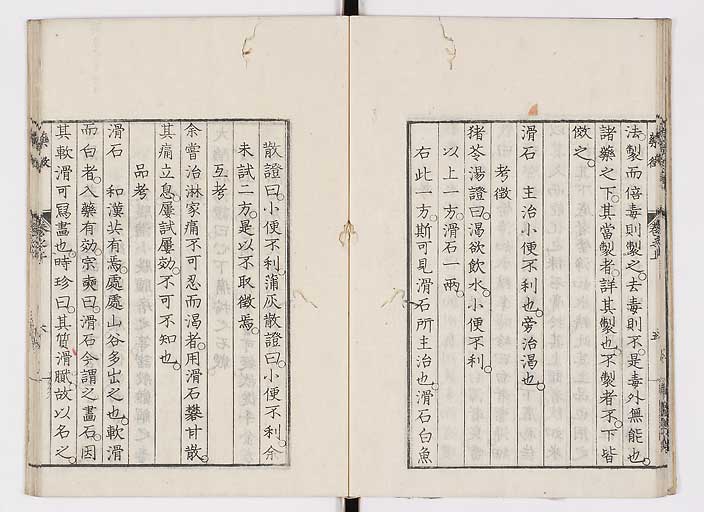 法製而倍毒則製之去毒則不是毒外無能也
諸藥之下其當製者詳其製也不製者不下皆
倣之
滑石　主治小便不利也旁治渴也
考徵
猪苓湯證曰渴欲飲水小便不利
以上一方滑石一兩
右此一方斯可見滑石所主治也滑石白魚
散證曰小便不利蒲灰散證曰小便不利余
未試二方是以不取徵焉
互考
余嘗治淋家痛不可忍而渴者用滑石礬甘散
其痛立息屢試屢効不可不知也
品考
滑石　和漢共有焉處處山谷多出之也軟滑
而白者入藥有効宗奭曰滑石今謂之畫石因
其軟滑可寫畫也時珍曰其質滑膩故以名之